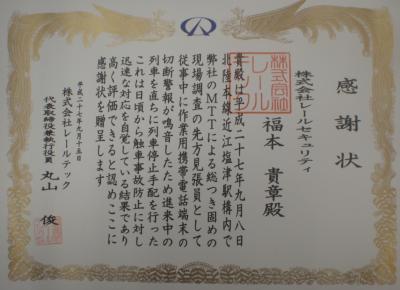 感謝状
株式会社レールセキュリティ
福本 貴章殿
貴殿は平成二十七年九月八日
北陸本線近江塩津駅構内で
弊社のMTTによる総つき固めの
現場調査の先方見張員として
従事中に作業用携帯電話端末の
切断警報が鳴音したため進来中の
列車を直ちに列車停止手配を行った
これは日頃から触車事故防止に対し
迅速な対応を自覚している結果であり
高く評価できると認めここに
感謝状を贈呈します
平成二十七年九月十五日
株式会社レールテック
代表取締役兼執行役員 丸山 俊